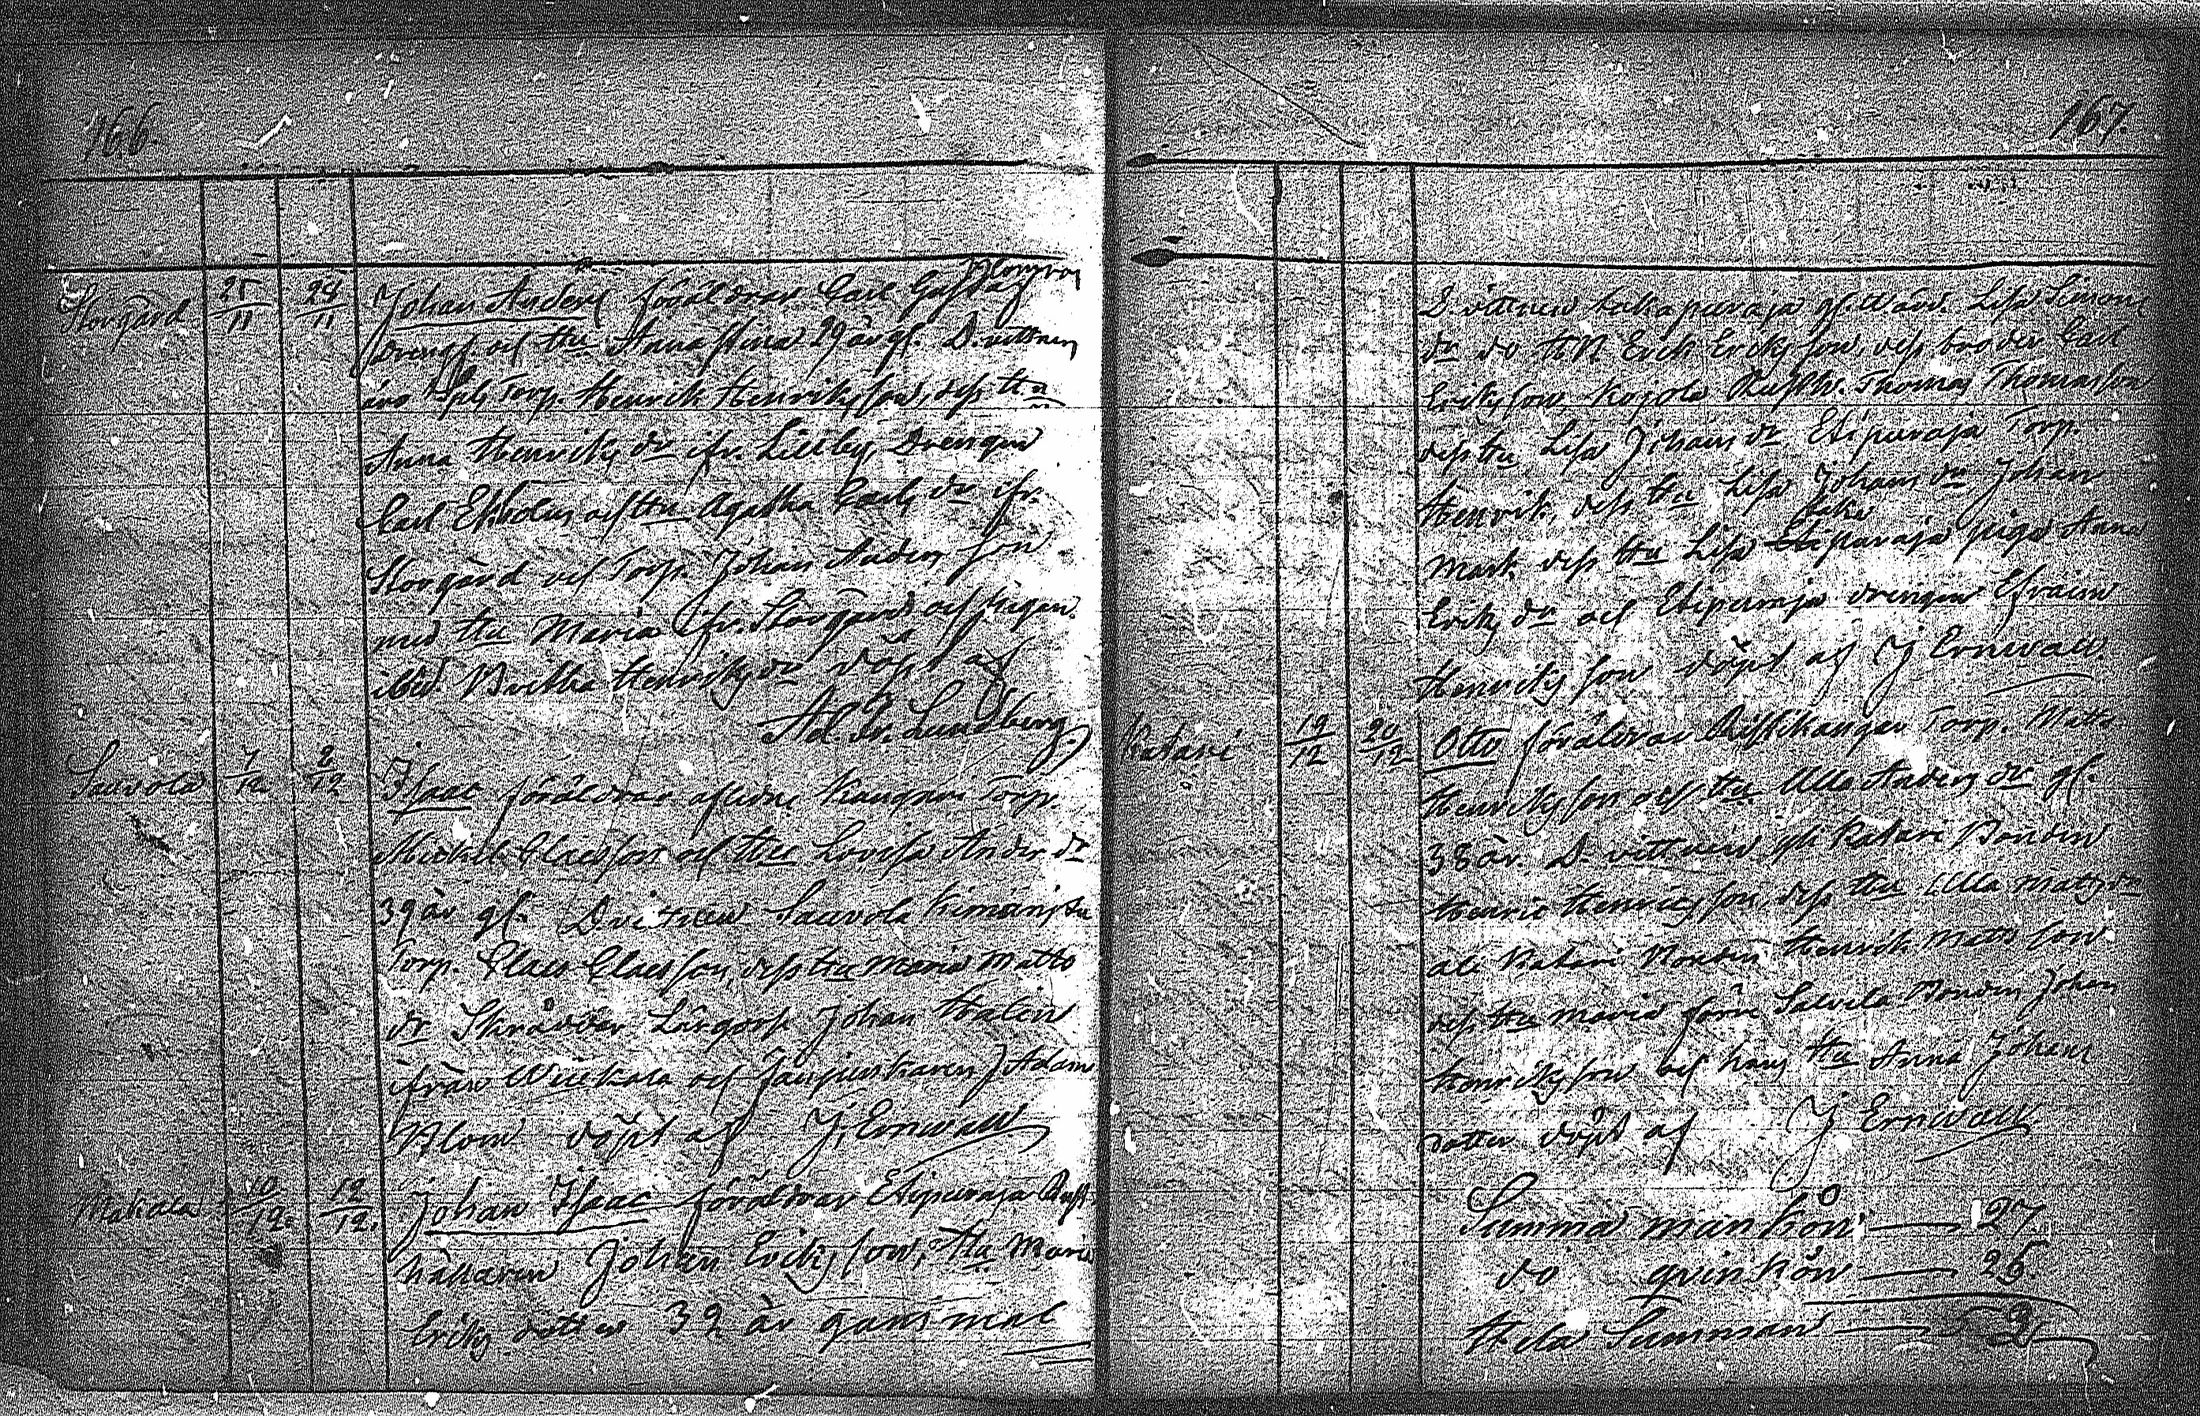 166.
Storgård 25/11 29/11 Johan Anders föräldrar Carl Gustaf Blomroos
dreng och Hu Anna Stina 29 år gl. D. vittnen
äro Torp. Henrik Henriksson, dess Hu
Anna Henriks dr ifr. Lillby, Drengen
Carl Ekholm och Hu Agatha Carls dr ifr.
Storgård och Torp. Johan Anders son
med Hu Maria ifr. Storgård och pigan
ibid. Britta Henriks dr döpt af
Ad. Fr. Lundberg.
Sauvola 1/12 2/12 Isaac föräldrar Torp.
Michel Claesson och Hu Lovisa Anders dr
39 år gl. D vittnen Sauvola
Torp. Claes Claesson, dess Hu Maria Matts
dr Skräddar Johan Halin
ifrån och J Adam
Blom döpt af J, Ernwall
Makala 10/12 12/12. Johan Isaac föräldrar Etiperaja Rust
hållaren Johan Ericks son, Hu Maria
Ericks dotter 32 år gammal
167.
D. vittnen Lisa Simons
dr do Erick Ericks son, dess broder Carl
Ericks son, Kojola Rusth. Thomas Thomasson
dess Hu Lisa Johans dr Etiperaja Torp.
Henrik, dess Hu Lisa Johans dr Johan
taka
Matt. dess Hu Lisa peraja piga Anna
Ericks dr och Etiperaja drengen Efraim
Henriks son döpt af J Ernwall
Katari 19/12 20/12 Otto föräldrar Torp. Matts
Henriksson och Hu Ulla Anders dr gl.
38 år D. vittnen Katari Bonden
Henric Henrics son, dess Hu Ulla Matts dr
Katari Bonden Henrik Matts son
dess Hu Maria förre Bonden Johan
Henriks son och hans Hu Anna Johans
dotter döpt af J Ernwall
Summa mankön — 27
do qvinkön — 25.
Hela Summan — 52